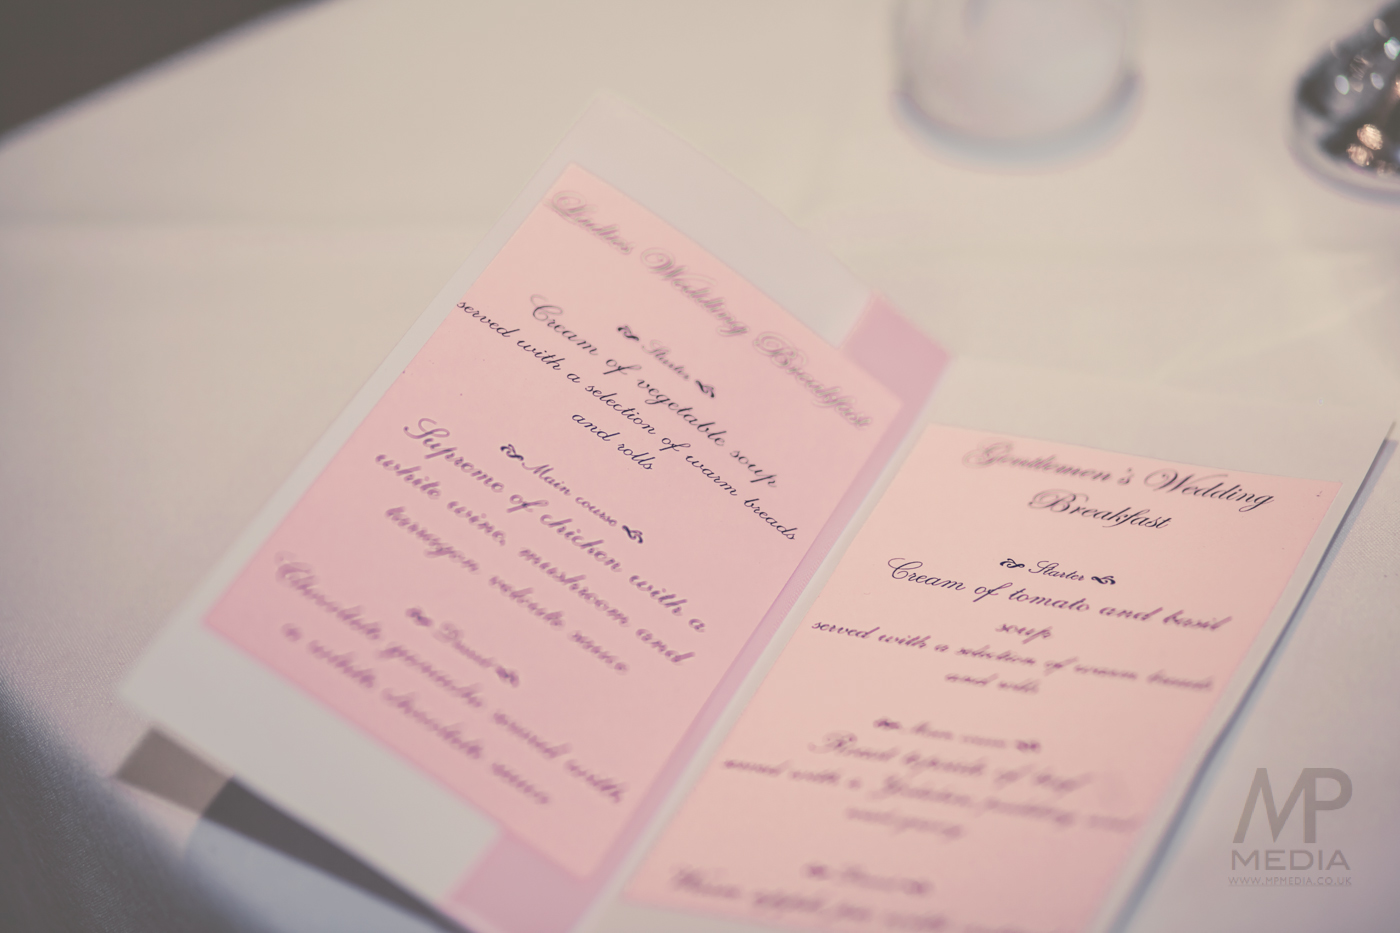 Ladies Wedding Breakfast
Starter
Cream of vegetable soup
served with a selection of warm breads
and rolls
Main course
Supreme of chicken with a
white wine, mushroom and
tarragon velouté sauce
Dessert
Chocolate served with
a white chocolate sauce
Gentlemen's Wedding
Breakfast
Starter
Cream of tomato and basil
soup
served with a selection of warm breads
and rolls
Main course
Roast topside of beef
served with a Yorkshire pudding and
MP
MEDIA
WWW.MPMEDIA.CO.UK